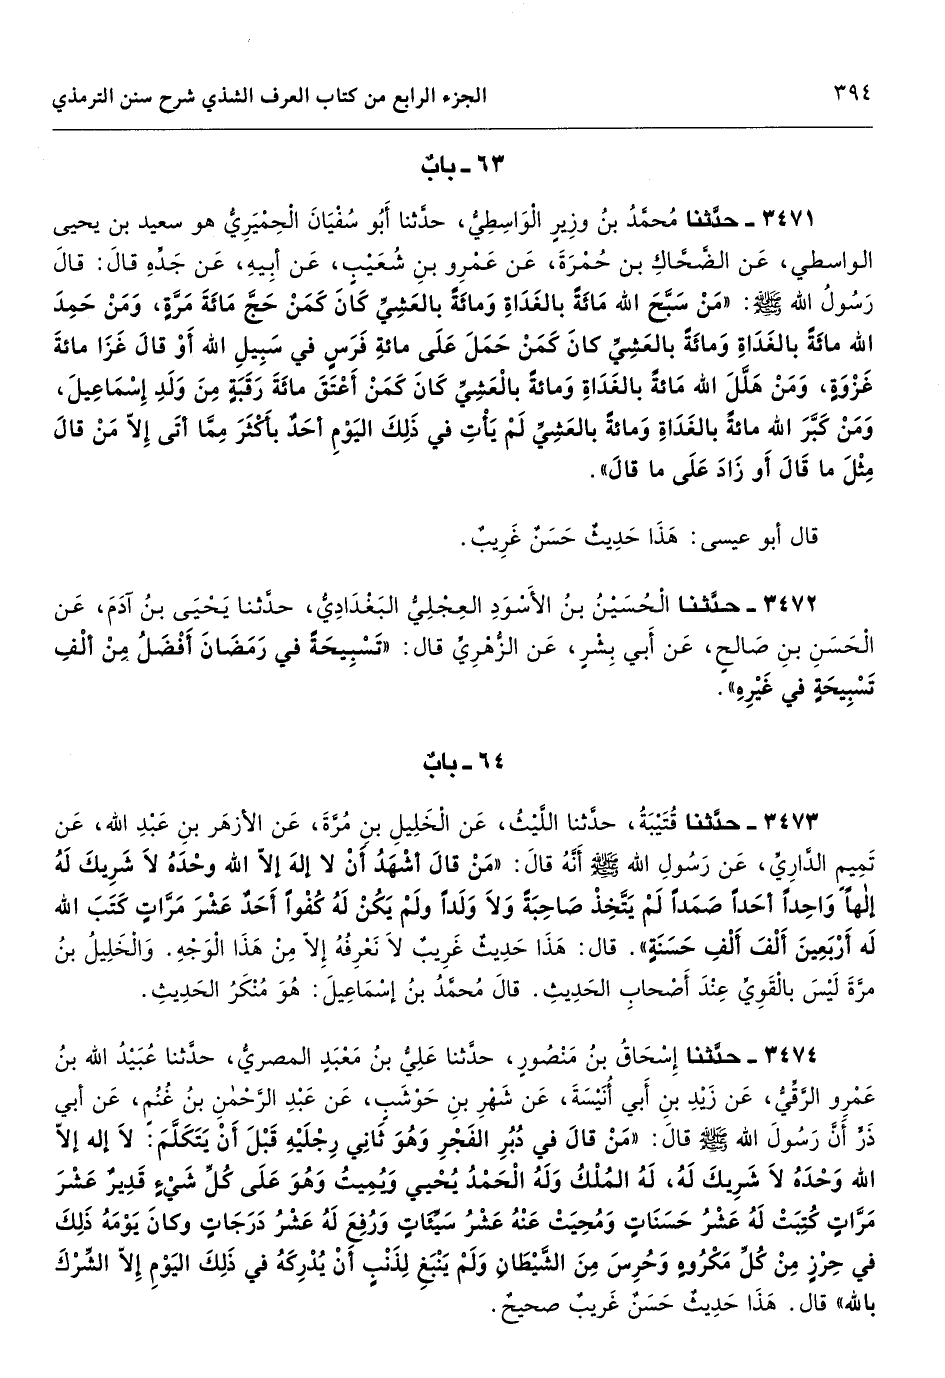 ٣٩٤ الجزء الرابع من كتاب العرف الشذي شرح سنن الترمذي
٦٣ ـ بابٌ
٣٤٧١ ـ حدَّثنا مُحمَّدُ بنُ وزيرٍ الْوَاسِطِيُّ، حدَّثنا أَبُو سُفْيَانَ الْحِمْيَرِيُّ هو سعيد بن يحيى
الواسطي، عَن الضَّحَّاكِ بن حُمْرَةَ، عَن عَمْرِو بنِ شُعَيْبٍ، عَن أَبيهِ، عَن جَدِّهِ قالَ: قالَ
رَسُولُ الله ﷺ: «مَنْ سَبَّحَ الله مَائَةً بالغَدَاةِ وَمائَةً بالعَشِيِّ كَانَ كَمَنْ حَجَّ مَائَةَ مَرَّةٍ، وَمَنْ حَمِدَ
الله مائَةً بالغَدَاةِ وَمائَةً بالعَشِيِّ كانَ كَمَنْ حَمَلَ عَلَى مائةِ فَرَسٍ في سَبِيلِ الله أَوْ قالَ غَزَا مائةَ
غَزْوَةٍ، وَمَنْ هَلَّلَ الله مَائةً بالغَدَاةِ وَمائةً بالْعَشِيِّ كَانَ كَمَنْ أَعْتَقَ مائَةَ رَقَبَةٍ مِنَ وَلَدِ إسْمَاعِيلَ،
وَمَنْ كَبَّرَ الله مائةً بالغَدَاةِ وَمائةً بالعَشِيِّ لَمْ يَأْتِ في ذَلِكَ اليَوْمِ أحَدٌ بأَكْثَرَ مِمَّا أتَى إلاّ مَنْ قالَ
مِثْلَ ما قَالَ أو زَادَ عَلَى ما قالَ».
قال أبو عيسى: هَذَا حَدِيثٌ حَسَنٌ غَرِيبٌ.
٣٤٧٢ ـ حدَّثنا الْحُسَيْنُ بنُ الأَسْوَدِ العِجْلِيُّ البَغْدَادِيُّ، حدَّثنا يَحْيَى بنُ آدَمَ، عَن
الْحَسَنِ بنِ صَالحٍ، عَن أَبي بِشْرٍ، عَن الزُّهْرِيِّ قال: «تَسْبِيحَةٌ في رَمَضَانَ أَفْضَلُ مِنْ ألْفِ
تَسْبِيحَةٍ في غَيْرِهِ».
٦٤ ـ بابٌ
٣٤٧٣ ـ حدَّثنا قُتَيْبَةُ، حدَّثنا اللَّيْثُ، عَن الْخَلِيلِ بنِ مُرَّةَ، عَن الأزهَر بنِ عَبْدِ الله، عَن
تَمِيم الدَّاريِّ، عَن رَسُولِ الله ﷺ أَنَّهُ قالَ: «مَنْ قالَ أشْهَدُ أَنْ لا إلهَ إلاّ الله وحْدَهُ لاَ شَرِيكَ لَهُ
إلٰهاً وَاحِداً أحَداً صَمَداً لَمْ يَتَّخِذْ صَاحِبَةً وَلاَ وَلَداً ولَمْ يَكُنْ لَهُ كُفُواً أحَدٌ عَشْرَ مَرَّاتٍ كَتَبَ الله
لَه أَرْبَعِينَ أَلْفَ أَلفِ حَسَنَةٍ». قال: هَذَا حَدِيثٌ غَرِيبٌ لاَ نَعْرِفُهُ إلاّ مِنْ هَذَا الْوَجْهِ. وَالْخَلِيلُ بنُ
مرَّةَ لَيْسَ بالْقَوِيِّ عِنْدَ أَصْحابِ الحَدِيثِ. قالَ مُحمَّدُ بنُ إسْمَاعِيلَ: هُوَ مُنْكَرُ الحَدِيثِ.
٣٤٧٤ ـ حدَّثنا إسْحَاقُ بنُ مَنْصُورٍ، حدَّثنا عَلِيُّ بنُ مَعْبَدٍ المصريُّ، حدَّثنا عُبَيْدُ الله بنُ
عَمْرٍو الرَّقِّيُّ، عَن زَيْدِ بنِ أَبي أُنَيْسَةَ، عَن شَهْرِ بنِ حَوْشَبٍ، عَن عَبْدِ الرَّحْمٰنِ بنُ غُنُمٍ، عَن أبي
ذَرٍّ أَنَّ رَسُولَ الله ﷺ قالَ: «مَنْ قالَ في دُبُرِ الفَجْرِ وَهُوَ ثَانِي رِجْلَيْهِ قَبْلَ أَنْ يَتَكَلَّمَ: لاَ إله إلاّ
الله وَحْدَهُ لاَ شَرِيكَ لَهُ، لَهُ المُلْكُ وَلَهُ الْحَمْدُ يُحْيي وَيُمِيتُ وَهُوَ عَلَى كُلِّ شَيْءٍ قَدِيرٌ عَشْرَ
مَرَّاتٍ كُتِبَتْ لَهُ عَشْرُ حَسَنَاتٍ وَمُحِيَتْ عَنْهُ عَشْرُ سَيِّئَاتٍ وَرُفِعَ لَهُ عَشْرُ دَرَجَاتٍ وكانَ يَوْمَهُ ذَلِكَ
في حِرْزٍ مِنْ كُلِّ مَكْرُوهٍ وَحُرِسَ مِنَ الشَّيْطَانِ وَلَمْ يَنْبَغِ لِذَنْبٍ أَنْ يُدْرِكَهُ في ذَلِكَ اليَوْمِ إلاّ الشِّرْكَ
بالله» قال. هَذَا حَدِيثٌ حَسَنٌ غَرِيبٌ صحيحٌ.